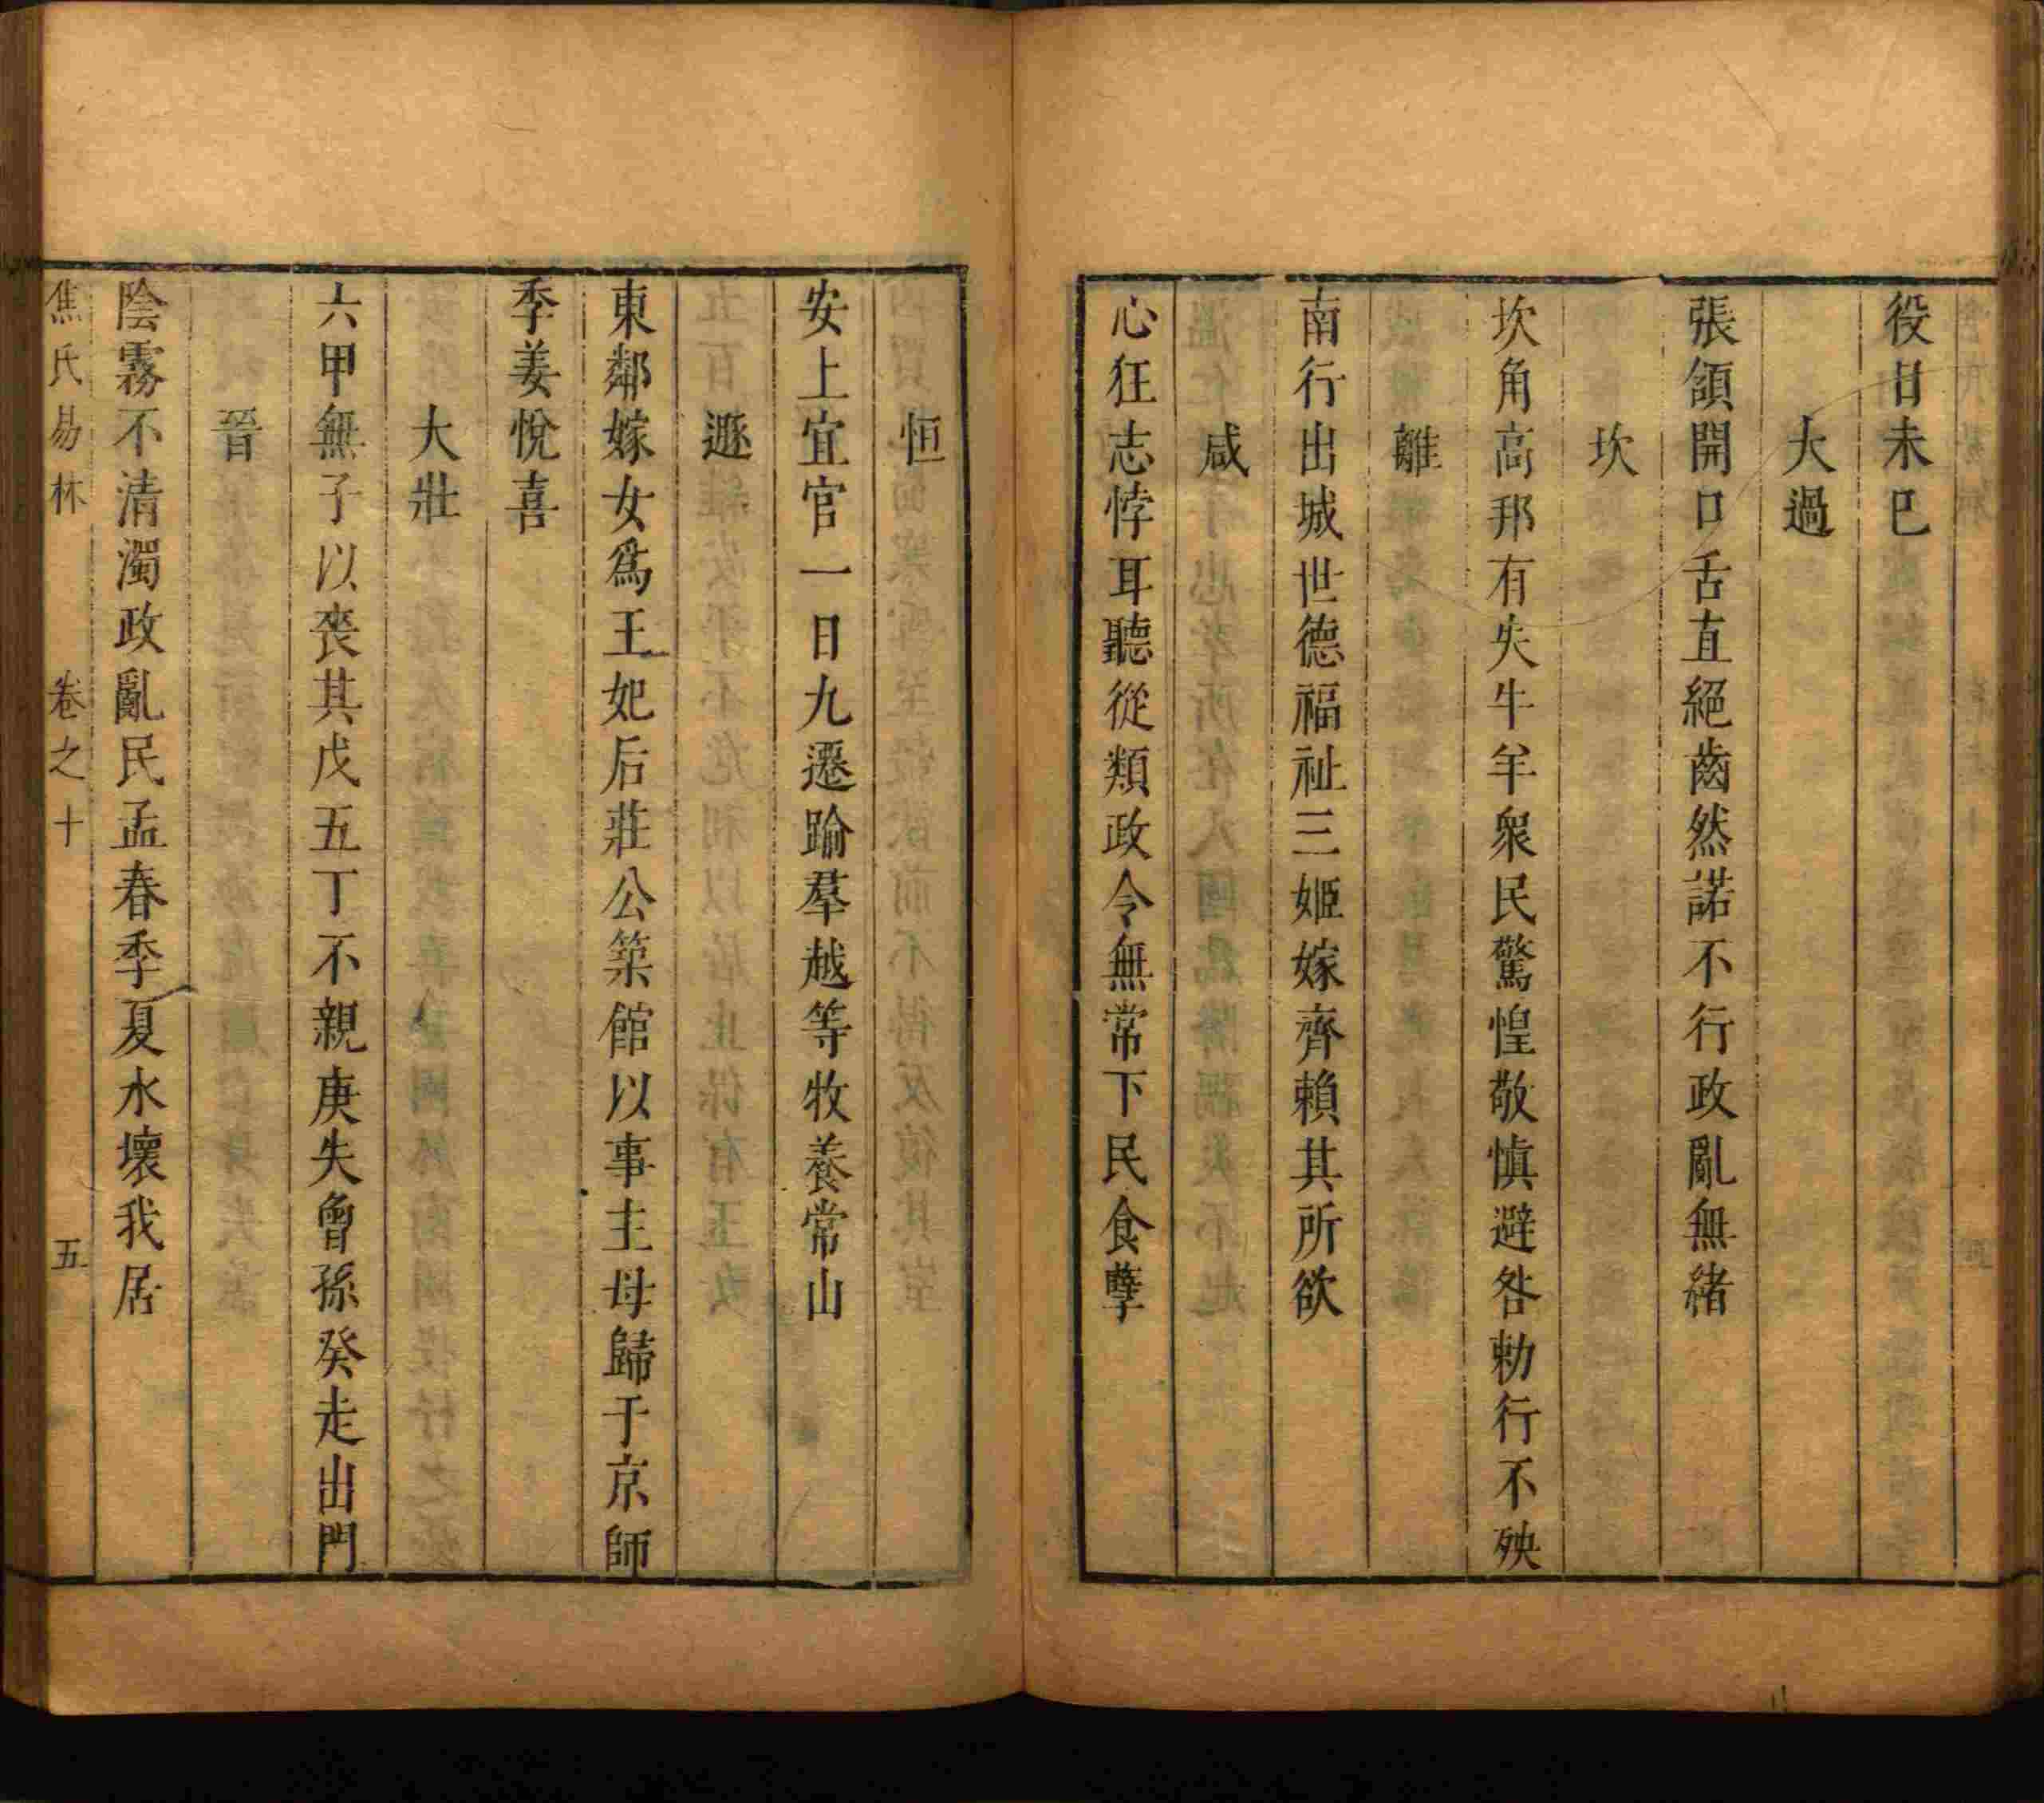 役日未已
大過
張頷開口舌直絕齒然諾不行政亂無緒
坎
坎角高邦有失牛羊衆民驚惶敬慎避咎勅行不殃
離
南行出城世德福祉三姬嫁齊賴其所欲
咸
心狂志悖耳聽從類政令無常下民食孽
恒
安上宜官一日九遷踰羣越等牧養常山
遯
東鄰嫁女爲王妃后莊公築館以事主母歸于京師
季姜悅喜
大壯
六甲無子以喪其戊五丁不親庚失曾孫癸走出門
晉
陰霧不清濁政亂民孟春季夏水壞我居
焦氏易林 卷之十 五